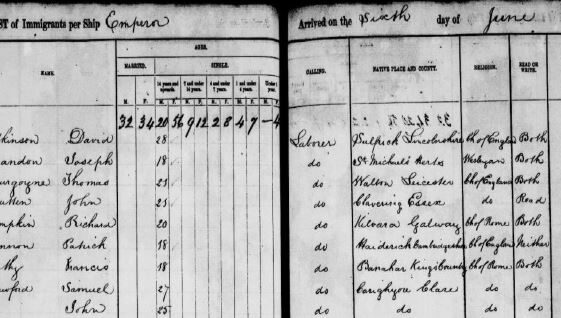 ST of Immigrants per Ship Emperor Arrived on the Sixth day of June
AGES.
MARRIED. SINGLE.
NAME. CALLING. NATIVE PLACE AND COUNTY. RELIGION. READ OR WRITE.
14 years and upwards. 7 and under 14 years. 4 and under 7 years. 1 and under 4 years. Under 1 year.
M. F. M. F. M. F. M. F. M. F. M. F.
32 34 20 56 9 12 2 8 4 7 – 4
kinson David 28 Laborer Lincolnshire Ch of England Both
andon Joseph 18 do St Michaels Herts Wesleyan Both
urgoyne Thomas 21 do Walton Leicester Ch of England Both
John 21 do Clavering Essex do Read
mpkin Richard 20 do Kilvara Galway Ch of Rome Both
nnon Patrick 18 do Cambridgeshire Ch of England Neither
thy Francis 18 do Banahar Kings County Ch of Rome Both
wford Samuel 27 do Clare do do
John 25 do do do do